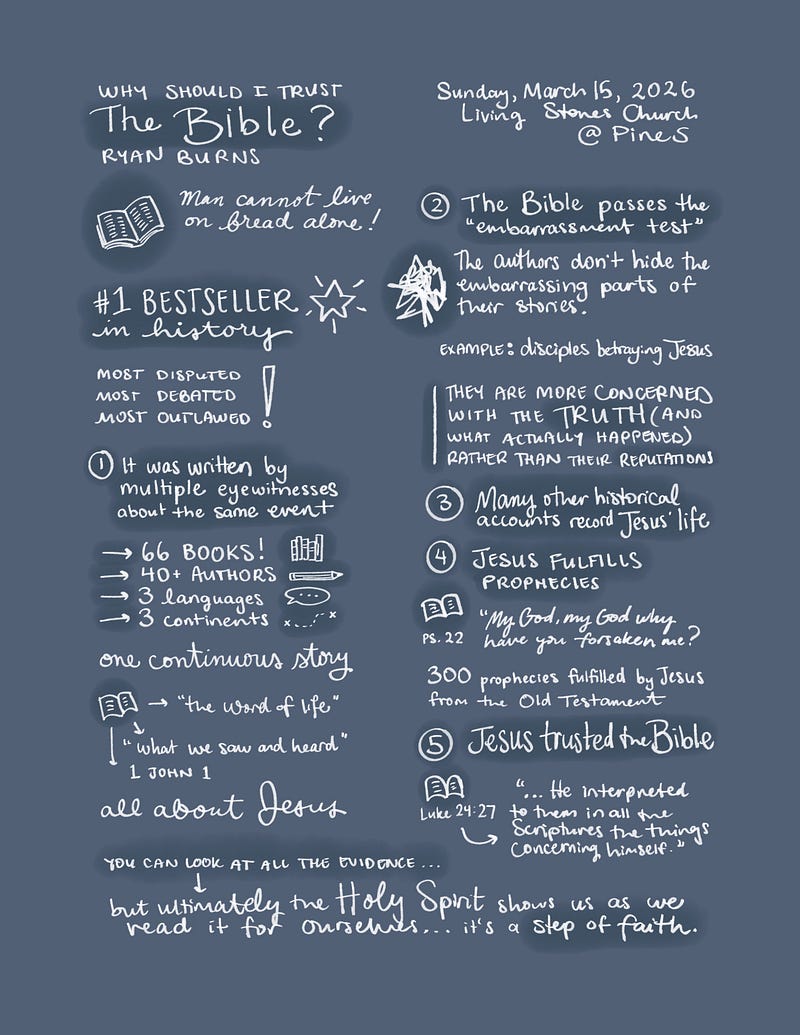 WHY SHOULD I TRUST
The Bible?
RYAN BURNS
Sunday, March 15, 2026
Living Stones Church
@ Pines
Man cannot live
on bread alone!
#1 BESTSELLER
in history
MOST DISPUTED
MOST DEBATED
MOST OUTLAWED !
① It was written by
multiple eyewitnesses
about the same event
→ 66 BOOKS!
→ 40+ AUTHORS
→ 3 languages
→ 3 continents
one continuous story
→ "the word of life"
"what we saw and heard"
1 JOHN 1
all about Jesus
② The Bible passes the
"embarrassment test"
The authors don't hide the
embarrassing parts of
their stories.
EXAMPLE: disciples betraying Jesus
THEY ARE MORE CONCERNED
WITH THE TRUTH (AND
WHAT ACTUALLY HAPPENED)
RATHER THAN THEIR REPUTATIONS
③ Many other historical
accounts record Jesus' life
④ JESUS FULFILLS
PROPHECIES
PS. 22
"My God, my God why
have you forsaken me?
300 prophecies fulfilled by Jesus
from the Old Testament
⑤ Jesus trusted the Bible
Luke 24:27
"... He interpreted
to them in all the
Scriptures the things
concerning himself."
YOU CAN LOOK AT ALL THE EVIDENCE...
but ultimately the Holy Spirit shows us as we
read it for ourselves... it's a step of faith.